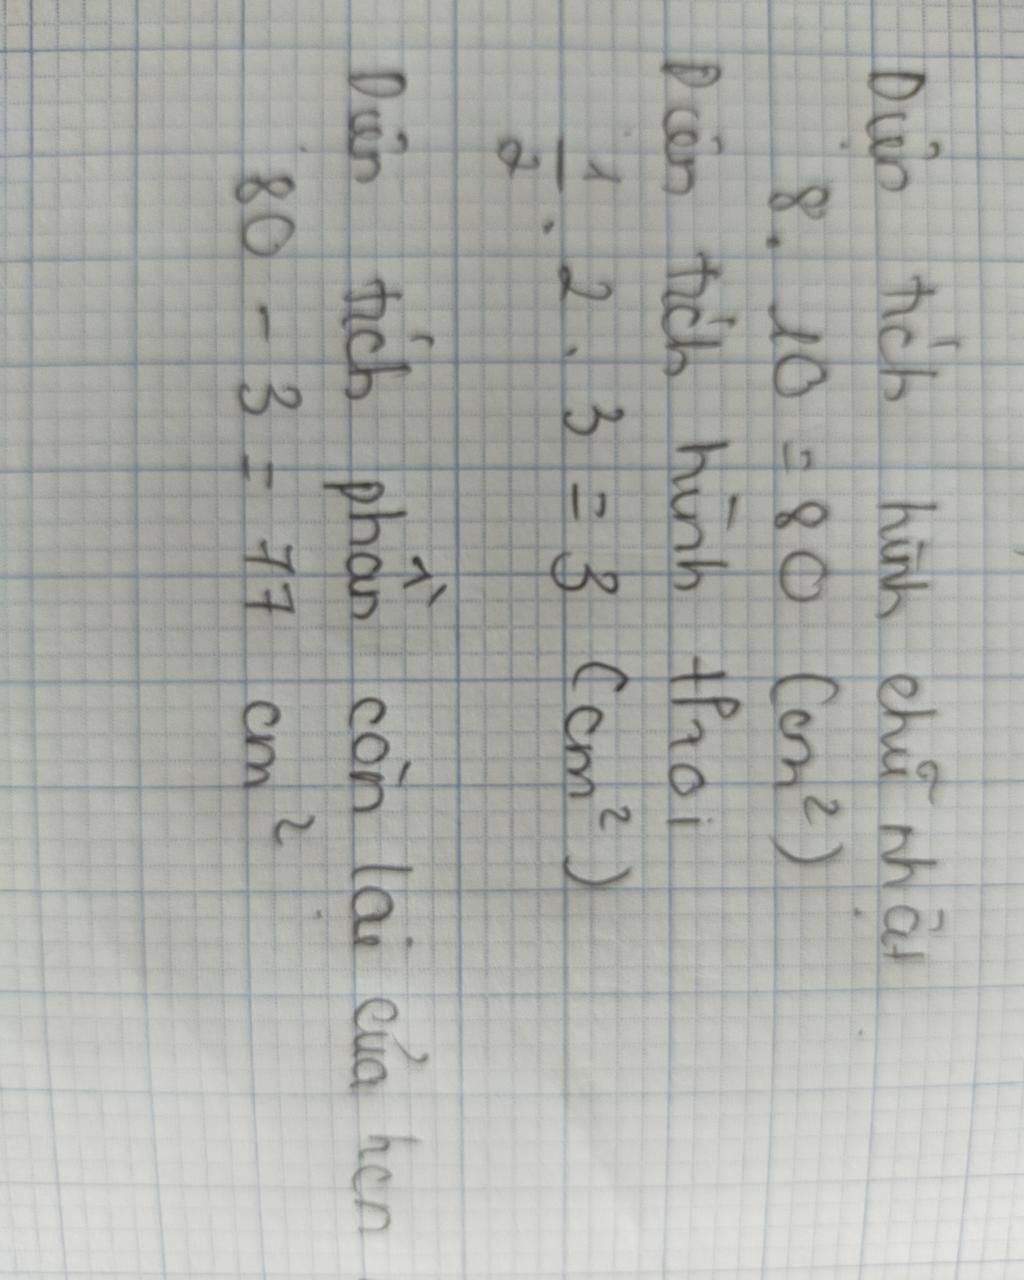 Diện tích hình chữ nhật
8. 10 = 80 (cm²)
Diện tích hình thoi
1/2 . 2 . 3 = 3 (cm²)
Diện tích phần còn lại của hcn
80 - 3 = 77 cm²